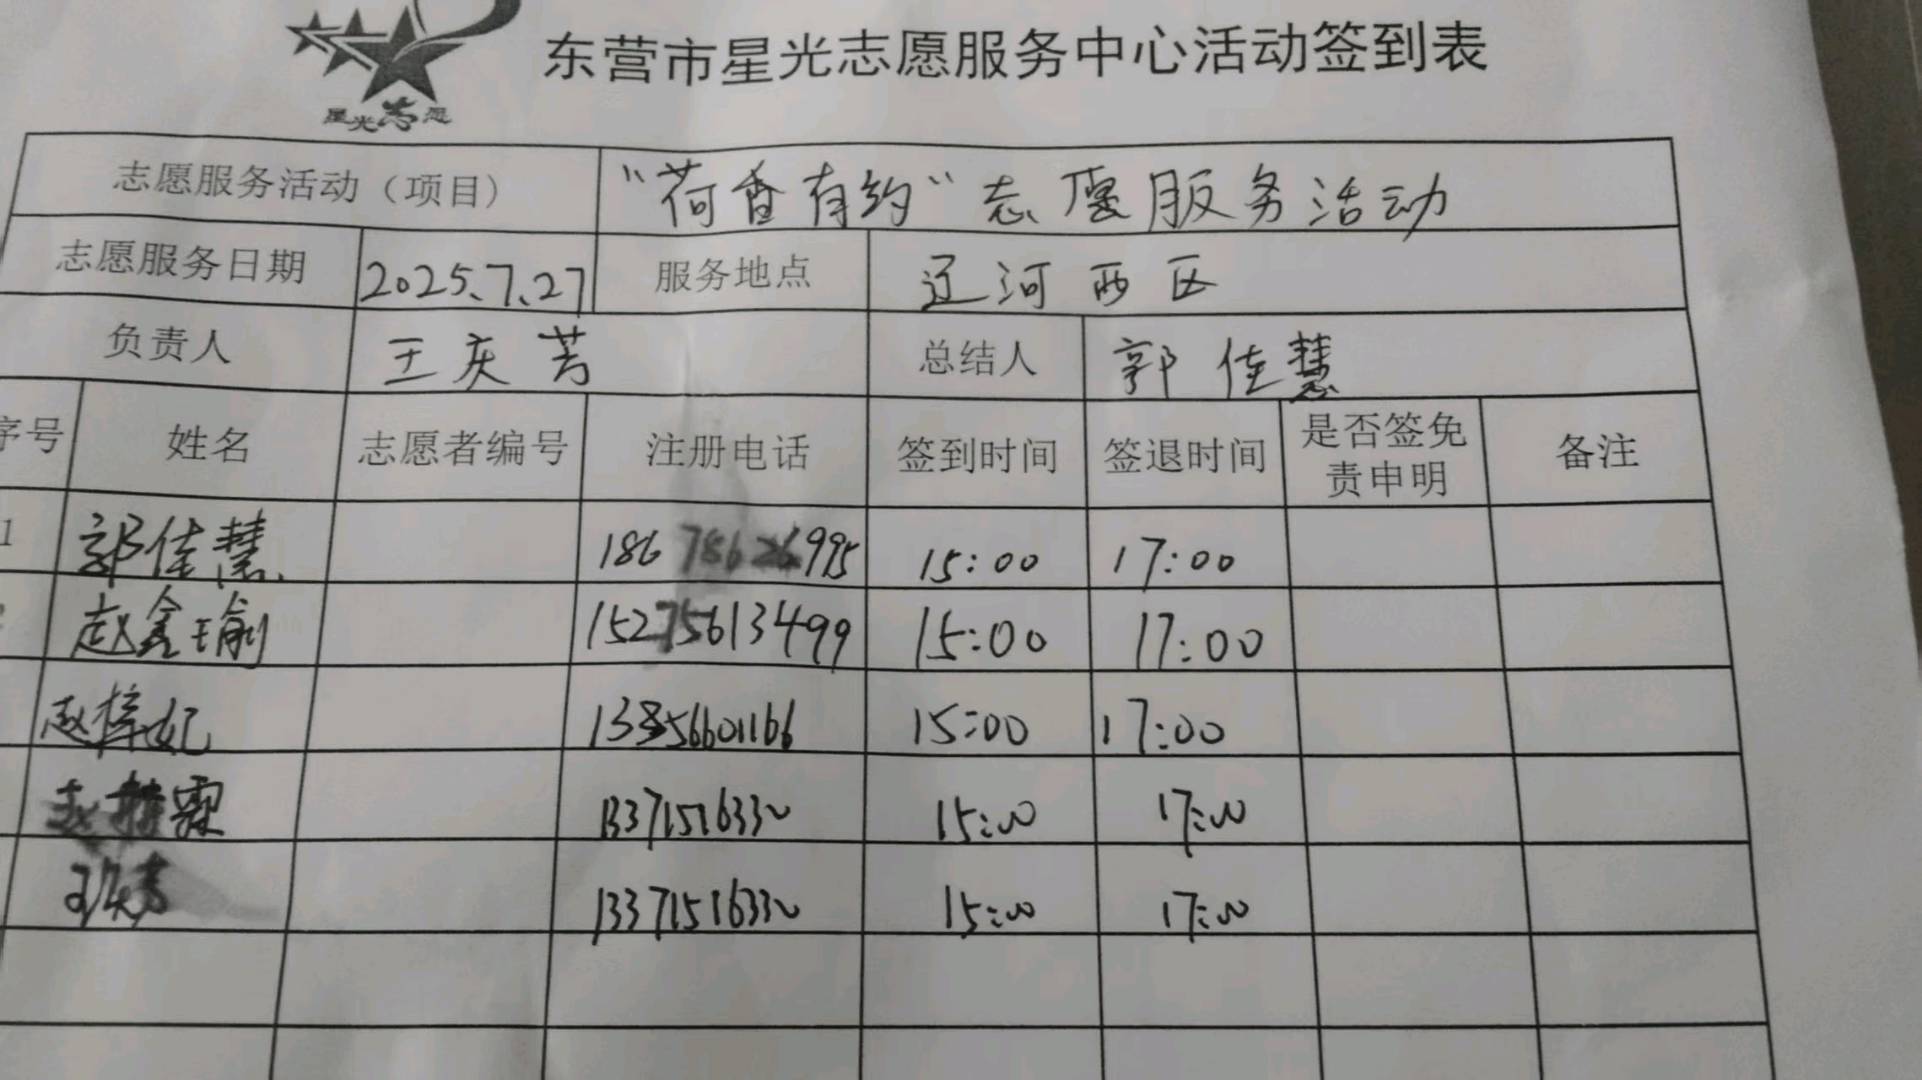 星光志愿
东营市星光志愿服务中心活动签到表
志愿服务活动（项目） “荷香有约”志愿服务活动
志愿服务日期 2025.7.27 服务地点 辽河西区
负责人 王庆芳 总结人 郭佳慧
序号 姓名 志愿者编号 注册电话 签到时间 签退时间 是否签免责申明 备注
1 郭佳慧 18678626995 15:00 17:00
赵鑫瑜 15275613499 15:00 17:00
赵梓妃 15:00 17:00
赵 霖 13371516330 15:00 17:00
王庆芳 13371516330 15:00 17:00